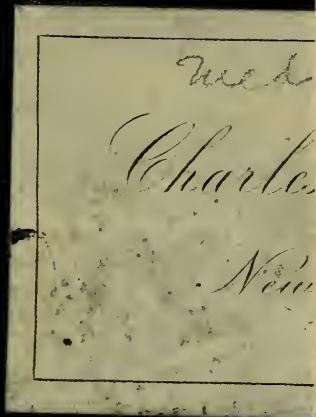 Charles
New